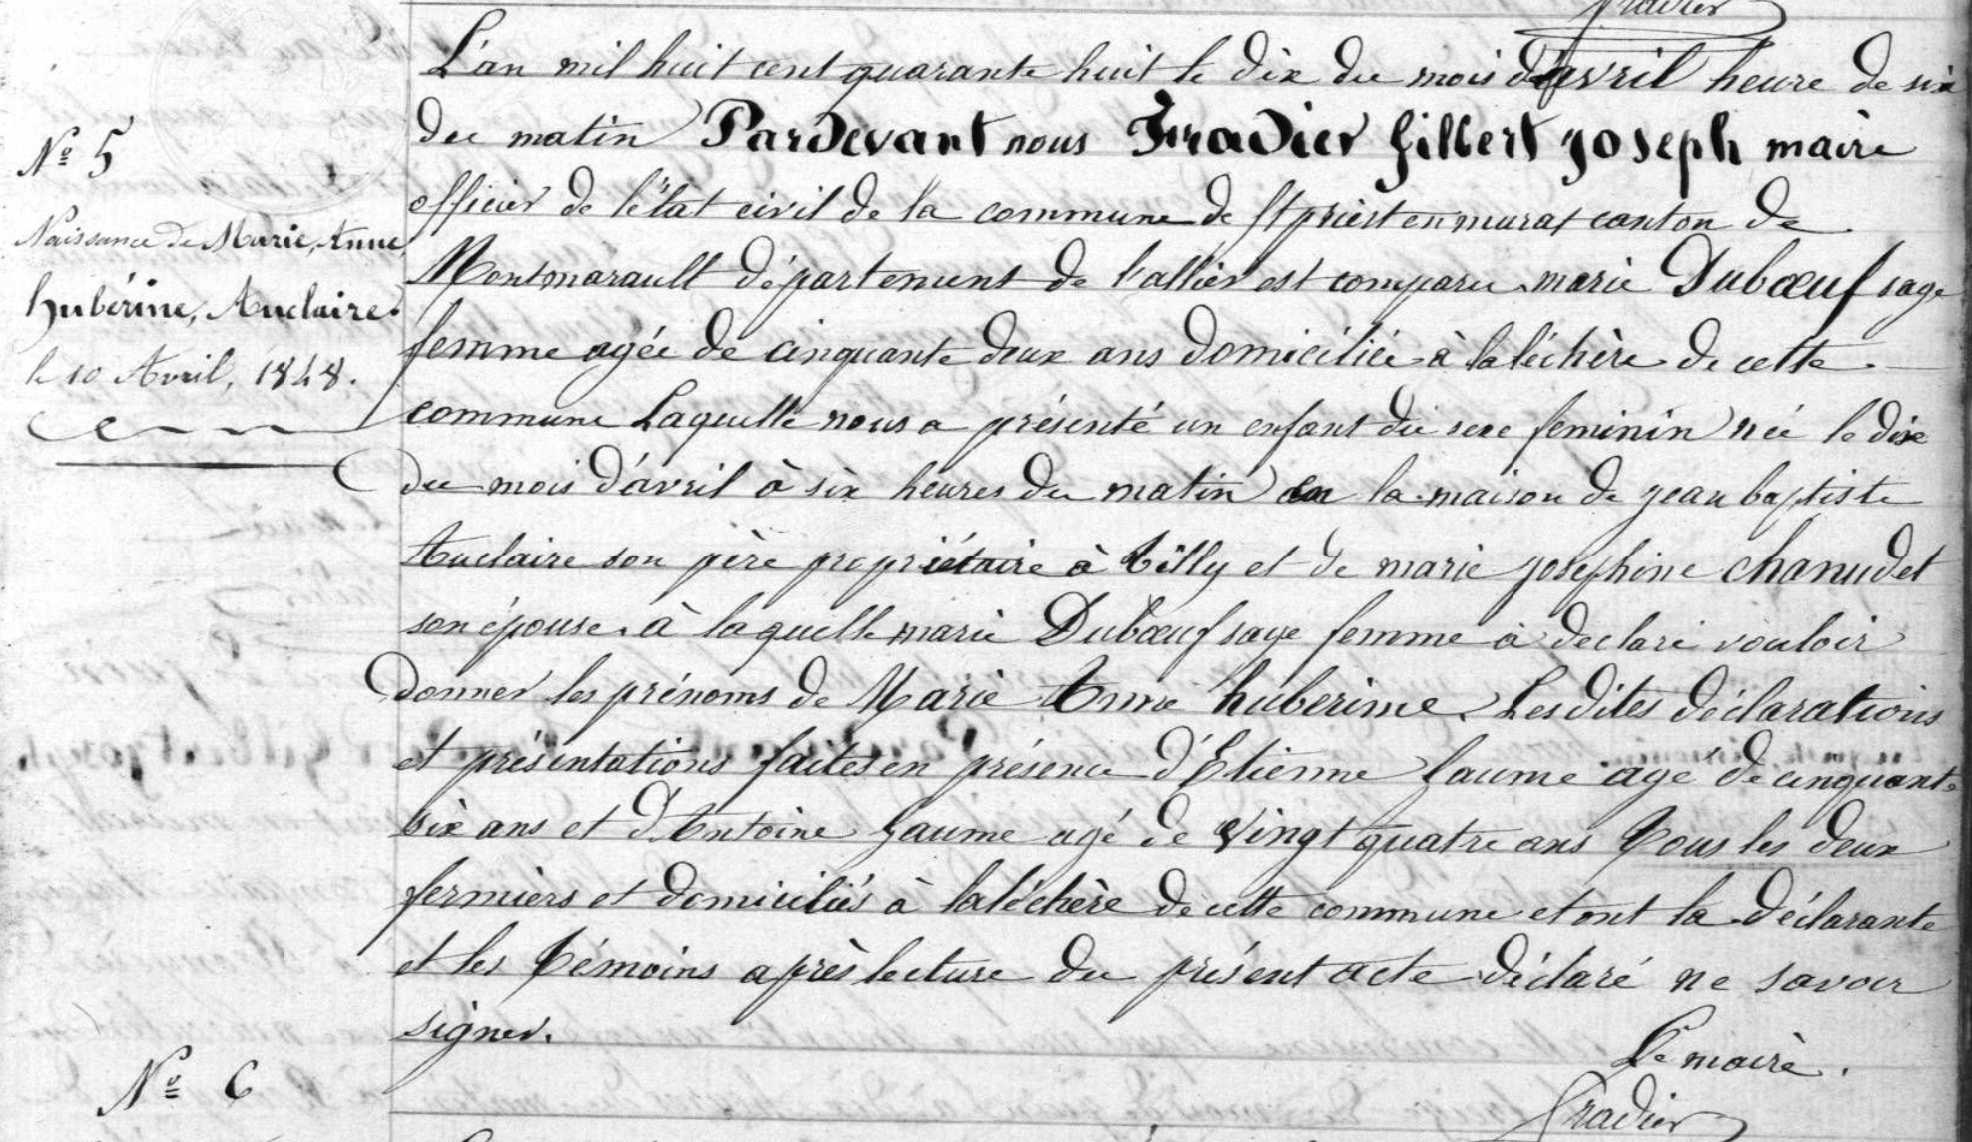 Fradier
L'an mil huit cent quarante huit le dix du mois d'avril heure de six
du matin Pardevant nous Fradier Gilbert Joseph maire
officier de l'état civil de la commune de St priest en murat canton de
Montmarault département de l'allier est comparu marie Dubœuf sage
femme agée de cinquante deux ans domiciliée à laléchère de cette
commune Laquelle nous a présenté un enfant du sexe feminin née le dix
du mois d'avril à six heures du matin en la maison de jean baptiste
Auclaire son père propriétaire à Tilly et de marie josephine chanudet
son épouse à laquelle marie Dubœuf sage femme à declaré vouloir
donner les prénoms de Marie Anne huberine. Les dites déclarations
et présentations faites en présence d'Etienne Jaume agé de cinquante
six ans et d'Antoine Jaume agé de vingt quatre ans Tous les deux
fermiers et domiciliés à laléchère de cette commune et ont la déclarante
et les Témoins après lecture du présent acte déclaré ne savoir
signer.
Le maire.
Fradier
Nº 5
Naissance de Marie, Anne,
hubérine, Auclaire.
le 10 Avril, 1848.
Nº 6